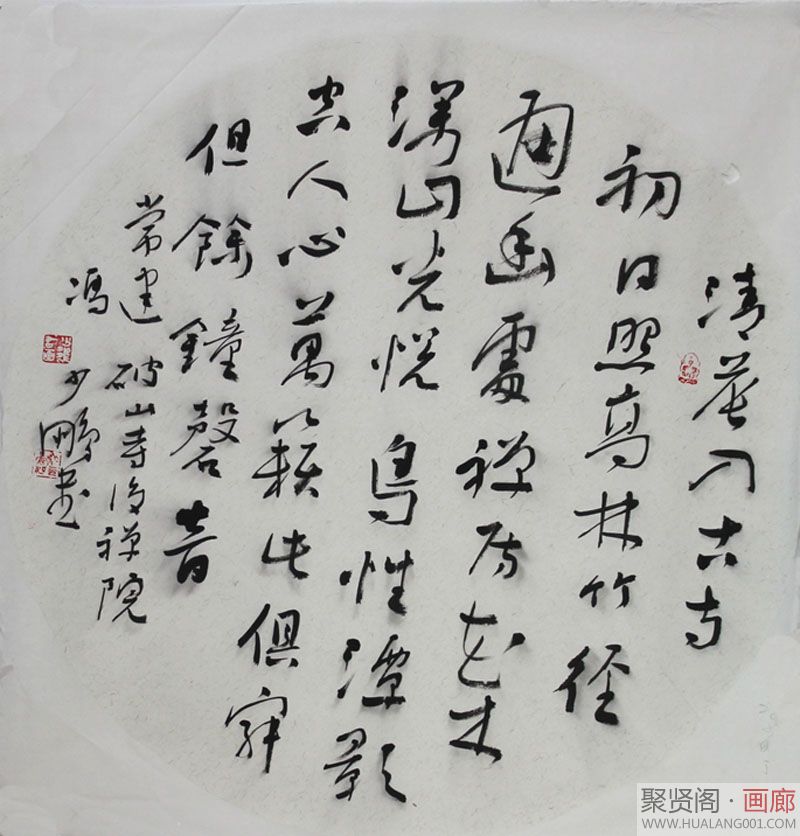 清晨入古寺
初日照高林竹徑
通幽處禪房花木
深山光悅鳥性潭影
空人心萬籟此俱寂
但餘鐘磬音
常建 破山寺後禪院
馮少鵬書
聚贤阁·画廊
WWW.HUALANG001.COM